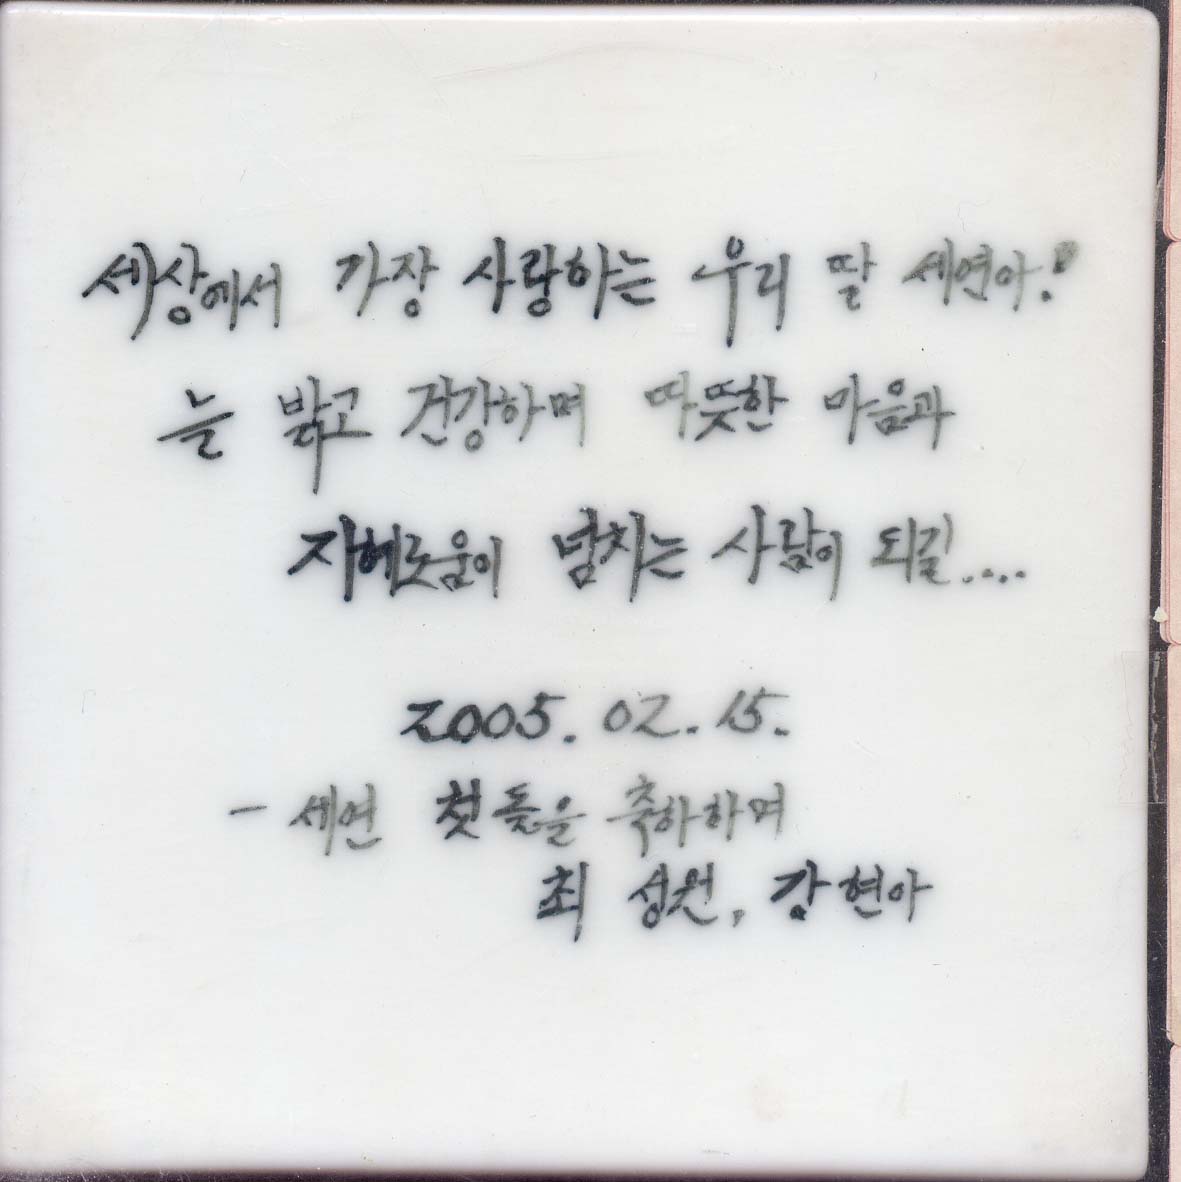 세상에서 가장 사랑하는 우리 딸 세연아!
늘 밝고 건강하며 따뜻한 마음과
지혜로움이 넘치는 사람이 되길....
2005. 02. 15.
- 세연 첫돌을 축하하며
최성원, 강현아